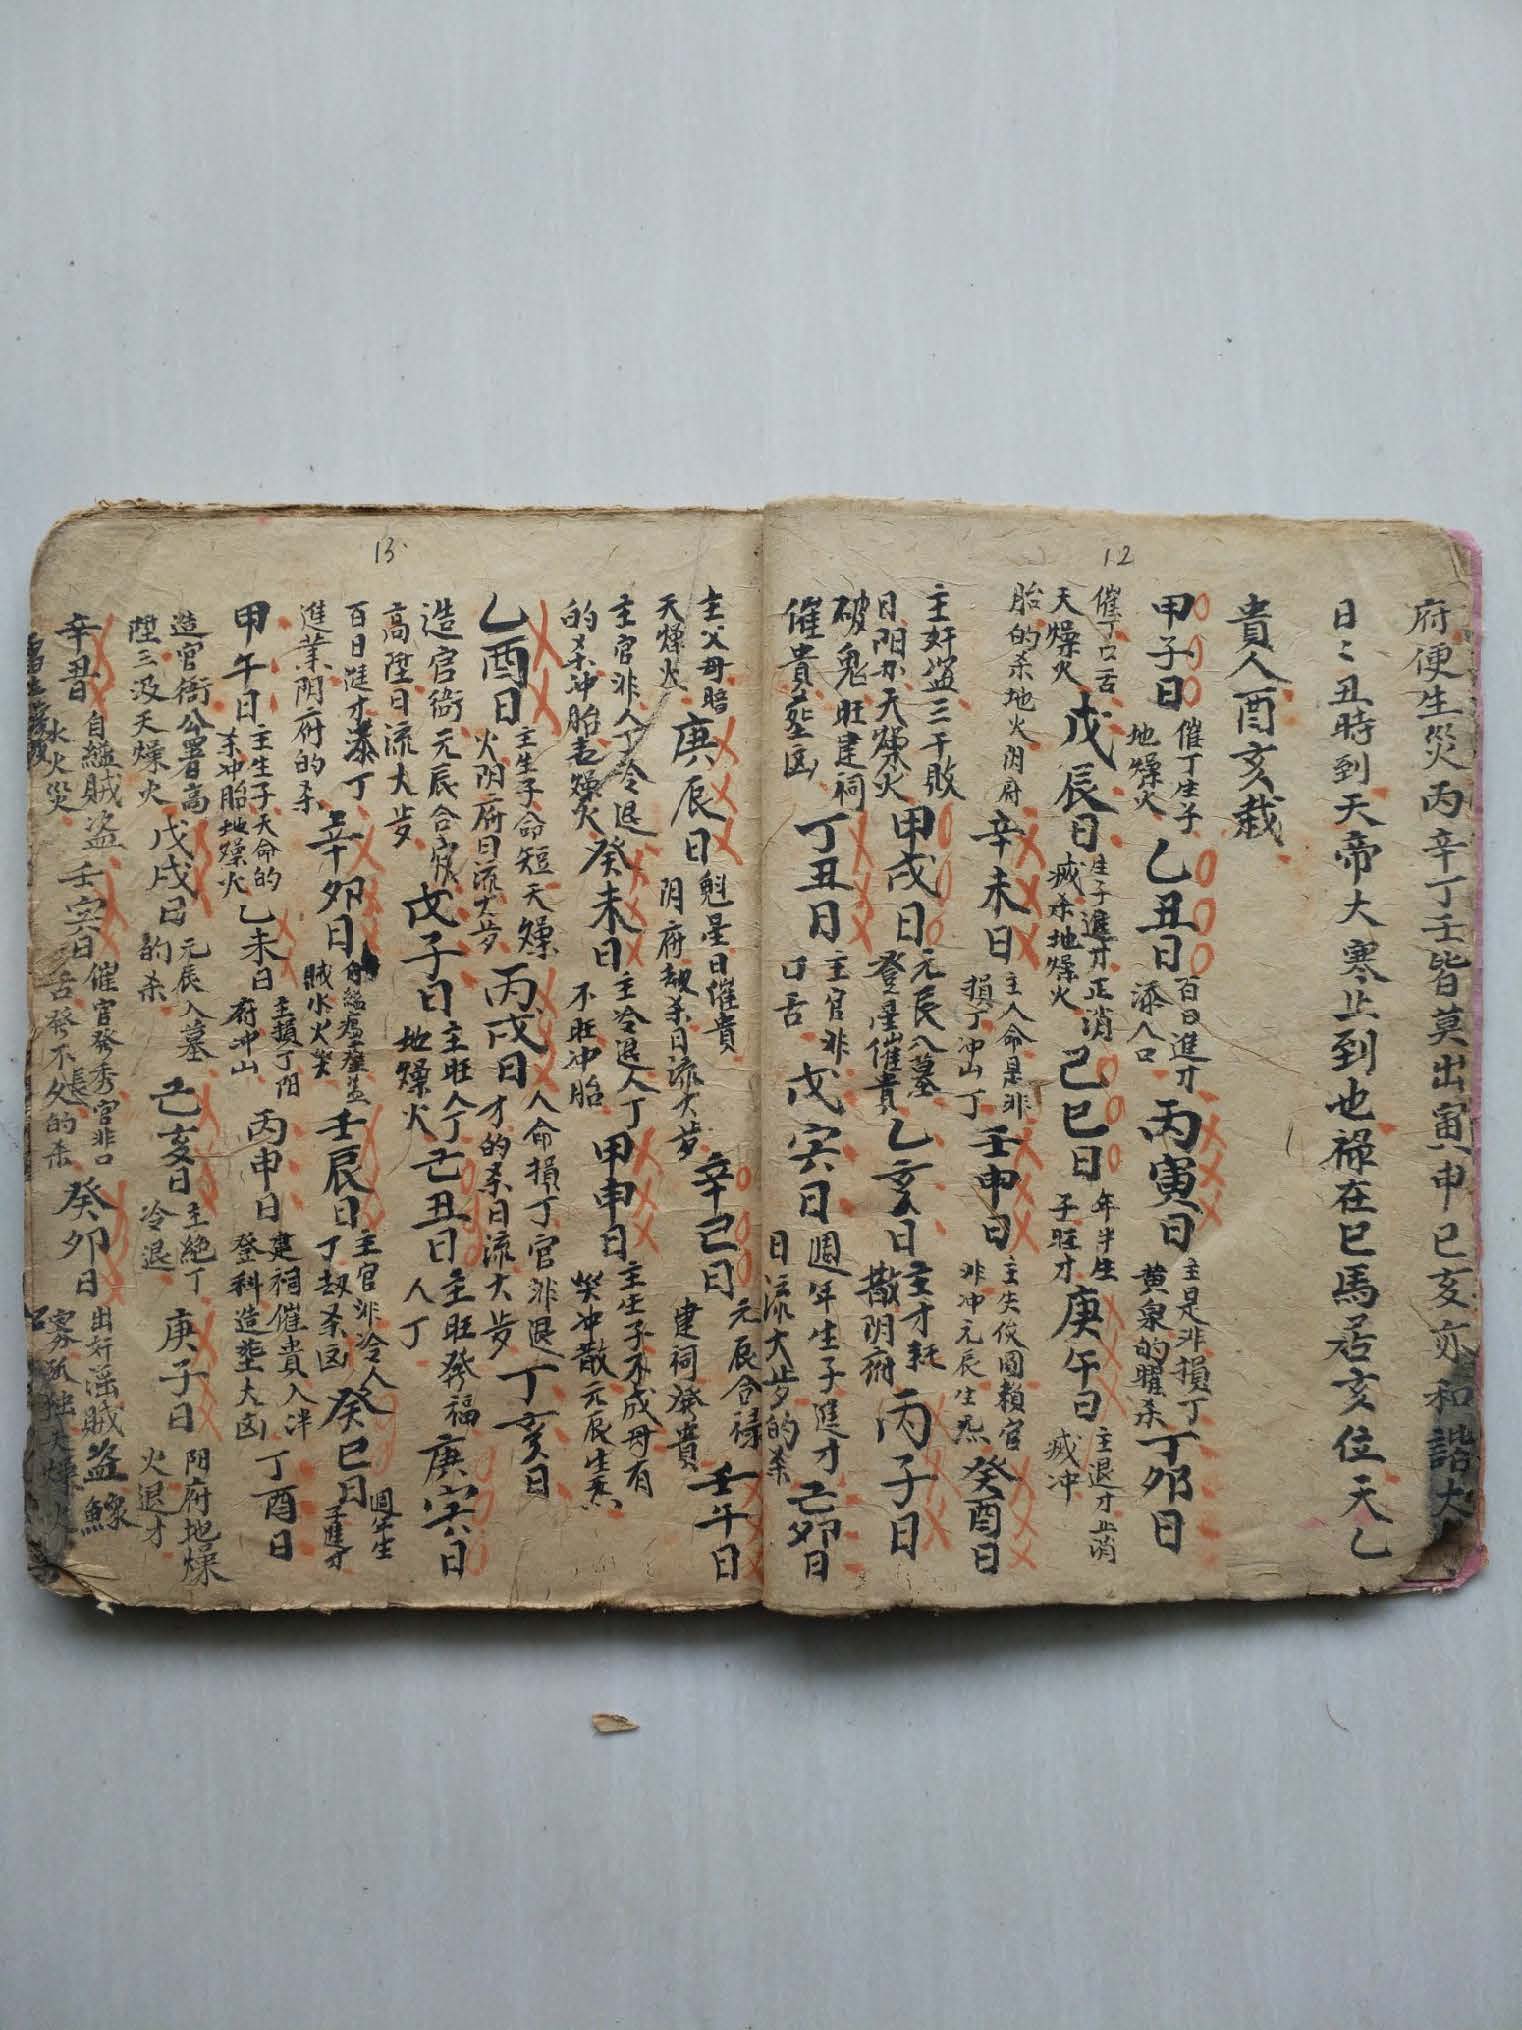 12
府便生災丙辛丁壬皆莫出寅申巳亥亦和諧大
日〻丑時到天帝大寒止到也祿在巳馬居亥位天乙
貴人酉亥栽
甲子日 催丁生子 地燥火 乙丑日 百日進才 添人口 丙寅日 主是非損丁 黄泉的曜杀 丁夘日
催丁口舌 天燥火 戊辰日 生子進才正消 滅杀地燥火 己巳日 年半生 子旺才 庚午日 主退才正消 滅冲
胎的杀地火阴府 辛未日 主人命是非 損丁冲山丁 壬申日 主失伩圖賴官 非冲元辰生炁 癸酉日
主奸盗三千敗 日阴府天燥火 甲戌日 元辰入墓 登星催貴 乙亥日 主才耗 散阴府 丙子日
破鬼旺建祠 催貴塟凶 丁丑日 主官非 口舌 戊寅日 週年生子進才 日流大步的杀 己夘日
13
主父母賠 天燥火 庚辰日 魁星日催貴 阴府劫杀日流大步 辛巳日 元辰合祿 建祠發貴 壬午日
主官非人丁冷退 的杀冲胎 燥火 癸未日 主冷退人丁 不旺冲胎 甲申日 主生子不成母有 災冲散元辰生炁
乙酉日 主生子命短天燥 火阴府日流大步 丙戌日 人命損丁官非退 才的杀日流大步 丁亥日
造官衙元辰合 高陞日流大步 戊子日 主旺人丁 地燥火 己丑日 主旺發福 人丁 庚寅日
百日進才添丁 進業阴府的杀 辛夘日 賊水火災 壬辰日 主官非冷人 丁劫杀凶 癸巳日 週年生 子進才
甲午日 主生子天命的 杀冲胎地燥火 乙未日 主損丁阳 府冲山 丙申日 建祠催貴入泮 登科造塟大凶 丁酉日
造官衙公署高 陞三汲天燥火 戊戌日 元辰入墓 的杀 己亥日 主絶丁 冷退 庚子日 阴府地燥 火退才
辛丑日 自縊賊盗 水火災 壬寅日 催官發秀官非口 舌發不久長的杀 癸夘日 出奸滛賊盗鰥